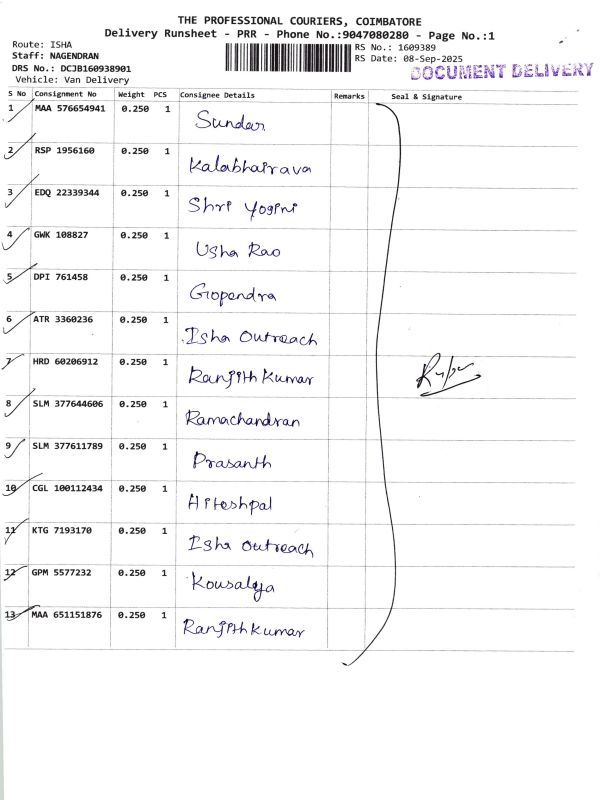 THE PROFESSIONAL COURIERS, COIMBATORE
Delivery Runsheet - PRR - Phone No.:9047080280 - Page No.:1
Route: ISHA
Staff: NAGENDRAN
DRS No.: DCJB160938901
Vehicle: Van Delivery
RS No.: 1609389
RS Date: 08-Sep-2025
DOCUMENT DELIVERY
S No Consignment No Weight PCS Consignee Details Remarks Seal & Signature
1 MAA 576654941 0.250 1 Sundar
2 RSP 1956160 0.250 1 Kalabhairava
3 EDQ 22339344 0.250 1 Shri Yogini
4 GWK 108827 0.250 1 Usha Rao
5 DPI 761458 0.250 1 Gopendra
6 ATR 3360236 0.250 1 Isha Outreach
7 HRD 60206912 0.250 1 Ranjith Kumar
8 SLM 377644606 0.250 1 Ramachandran
9 SLM 377611789 0.250 1 Prasanth
10 CGL 100112434 0.250 1 Hiteshpal
11 KTG 7193170 0.250 1 Isha Outreach
12 GPM 5577232 0.250 1 Kousalya
13 MAA 651151876 0.250 1 Ranjith Kumar